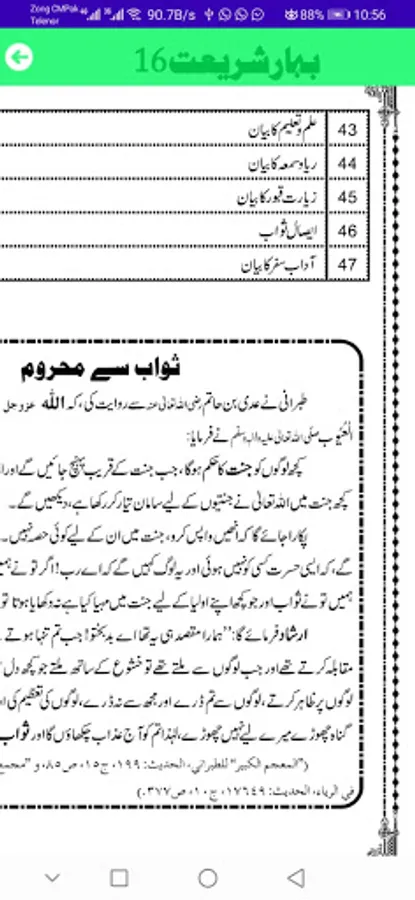 Zong CMPak
Telenor
90.7B/s
88%
10:56
بہار شریعت 16
43 علم و تعلیم کا بیان
44 ریا و سمعہ کا بیان
45 زیارت قبور کا بیان
46 ایصال ثواب
47 آداب سفر کا بیان
ثواب سے محروم
طبرانی نے عدی بن حاتم رضی اللہ تعالیٰ عنہ سے روایت کی، کہ اللہ عزوجل
الغیوب صلی اللہ تعالیٰ علیہ والہ وسلم نے فرمایا:
کچھ لوگوں کو جنت کا حکم ہوگا، جب جنت کے قریب پہنچ جائیں گے اور ا
کچھ جنت میں اللہ تعالیٰ نے جنتیوں کے لیے سامان تیار کر رکھا ہے، دیکھیں گے۔
پکارا جائے گا کہ انھیں واپس کرو، جنت میں ان کے لیے کوئی حصہ نہیں۔
گے، کہ ایسی حسرت کسی کو نہیں ہوئی اور یہ لوگ کہیں گے کہ اے رب! اگر تو نے ہمی
ہمیں تو نے ثواب اور جو کچھ اپنے اولیا کے لیے جنت میں مہیا کیا ہے نہ دکھایا ہوتا تو
ارشاد فرمائے گا: ”ہمارا مقصد ہی یہ تھا اے بدبختو! جب تم تنہا ہوتے
مقابلہ کرتے تھے اور جب لوگوں سے ملتے تھے تو خشوع کے ساتھ ملتے جو کچھ دل
لوگوں پر ظاہر کرتے، لوگوں سے تم ڈرے اور مجھ سے نہ ڈرے، لوگوں کی تعظیم کی ا
گناہ چھوڑے میرے لیے نہیں چھوڑے، لہٰذا تم کو آج عذاب چکھاؤں گا اور ثواب
(”المعجم الکبیر“ للطبراني، الحدیث: ۱۹۹، ج۱۵، ص۸۵، و ”مجمع
في الرياء، الحديث: ۱۷۶۴۹، ج۱۰، ص۳۷۷.)